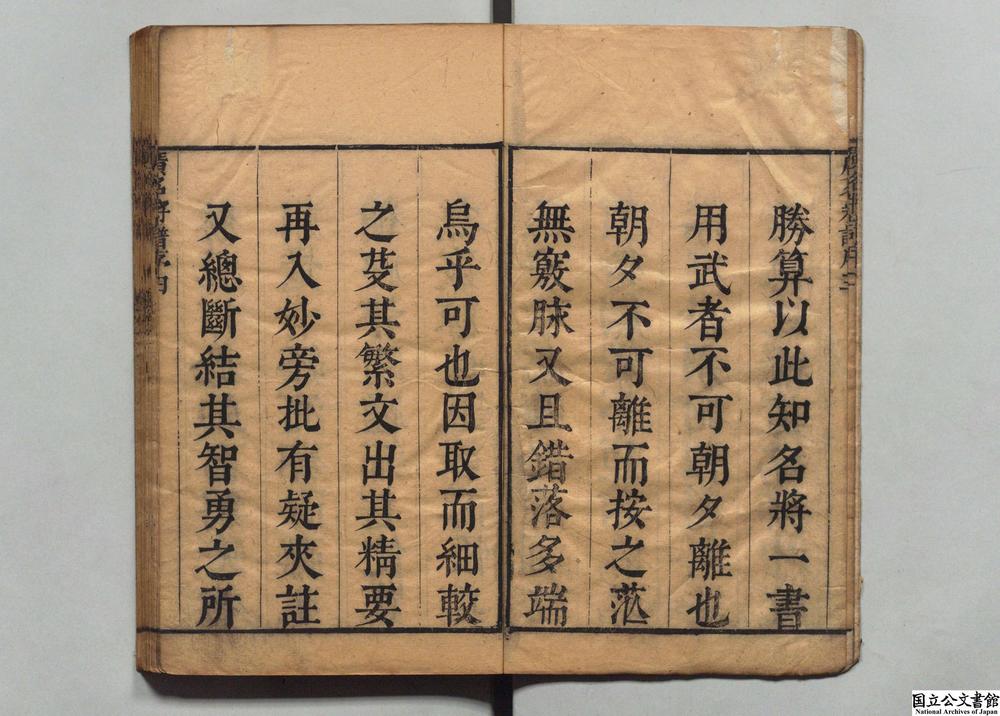 勝算以此知名將一書
用武者不可朝夕離也
朝夕不可離而按之茫
無竅脉又且錯落多端
烏乎可也因取而細較
之芟其繁文出其精要
再入妙旁批有疑夾註
又總斷結其智勇之所
国立公文書館
National Archives of Japan